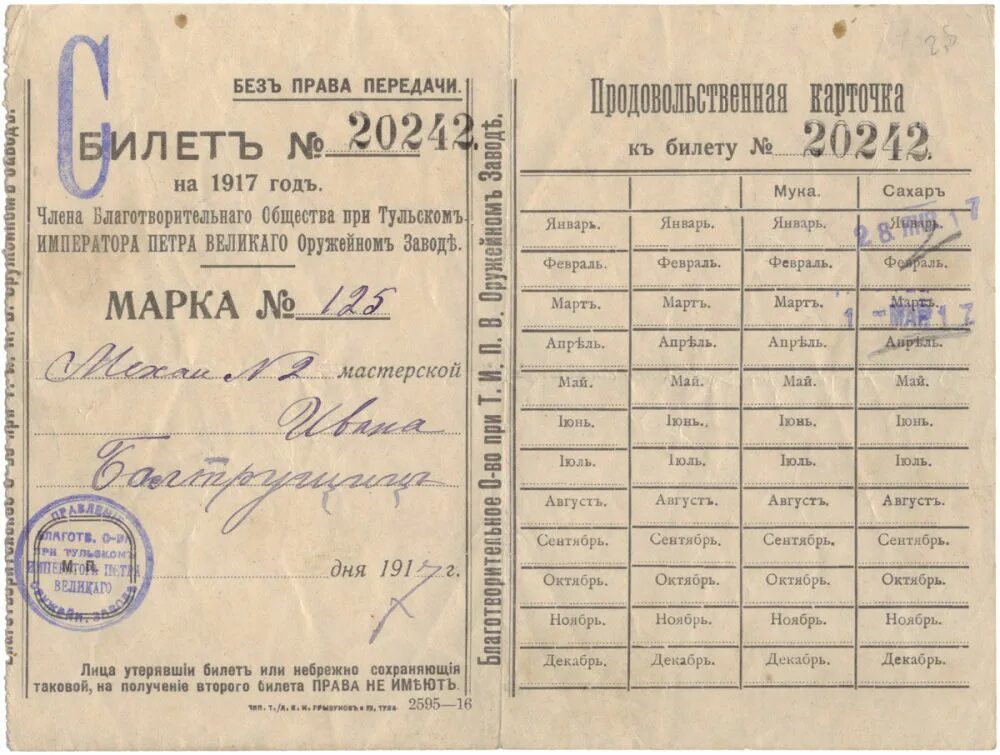 С
БЕЗЪ ПРАВА ПЕРЕДАЧИ.
БИЛЕТЪ № 20242.
на 1917 годъ.
Члена Благотворительнаго Общества при Тульскомъ
ИМПЕРАТОРА ПЕТРА ВЕЛИКАГО Оружейномъ Заводѣ.
МАРКА № 125
Механ №2 мастерской
Ивана
М. П.
дня 1917 г.
ПРАВЛЕНІЕ
БЛАГОТВ. О-ВА
ПРИ ТУЛЬСКОМЪ
ИМПЕРАТОРА ПЕТРА
ВЕЛИКАГО
ОРУЖЕЙН. ЗАВОДѢ
Лица утерявшія билетъ или небрежно сохраняющія
таковой, на полученіе второго билета ПРАВА НЕ ИМѢЮТЪ.
2595—16
Благотворительное О-во при Т. И. П. В. Оружейномъ Заводѣ.
Продовольственная карточка
къ билету № 20242.
Мука. Сахаръ
Январь. Январь. Январь. Январь.
28 ЯНВ 17
Февраль. Февраль. Февраль. Февраль.
Мартъ. Мартъ. Мартъ. Мартъ.
1 - МАР 17
Апрѣль. Апрѣль. Апрѣль. Апрѣль.
Май. Май. Май. Май.
Іюнь. Іюнь. Іюнь. Іюнь.
Іюль. Іюль. Іюль. Іюль.
Августъ. Августъ. Августъ. Августъ.
Сентябрь. Сентябрь. Сентябрь. Сентябрь.
Октябрь. Октябрь. Октябрь. Октябрь.
Ноябрь. Ноябрь. Ноябрь. Ноябрь.
Декабрь. Декабрь. Декабрь. Декабрь.